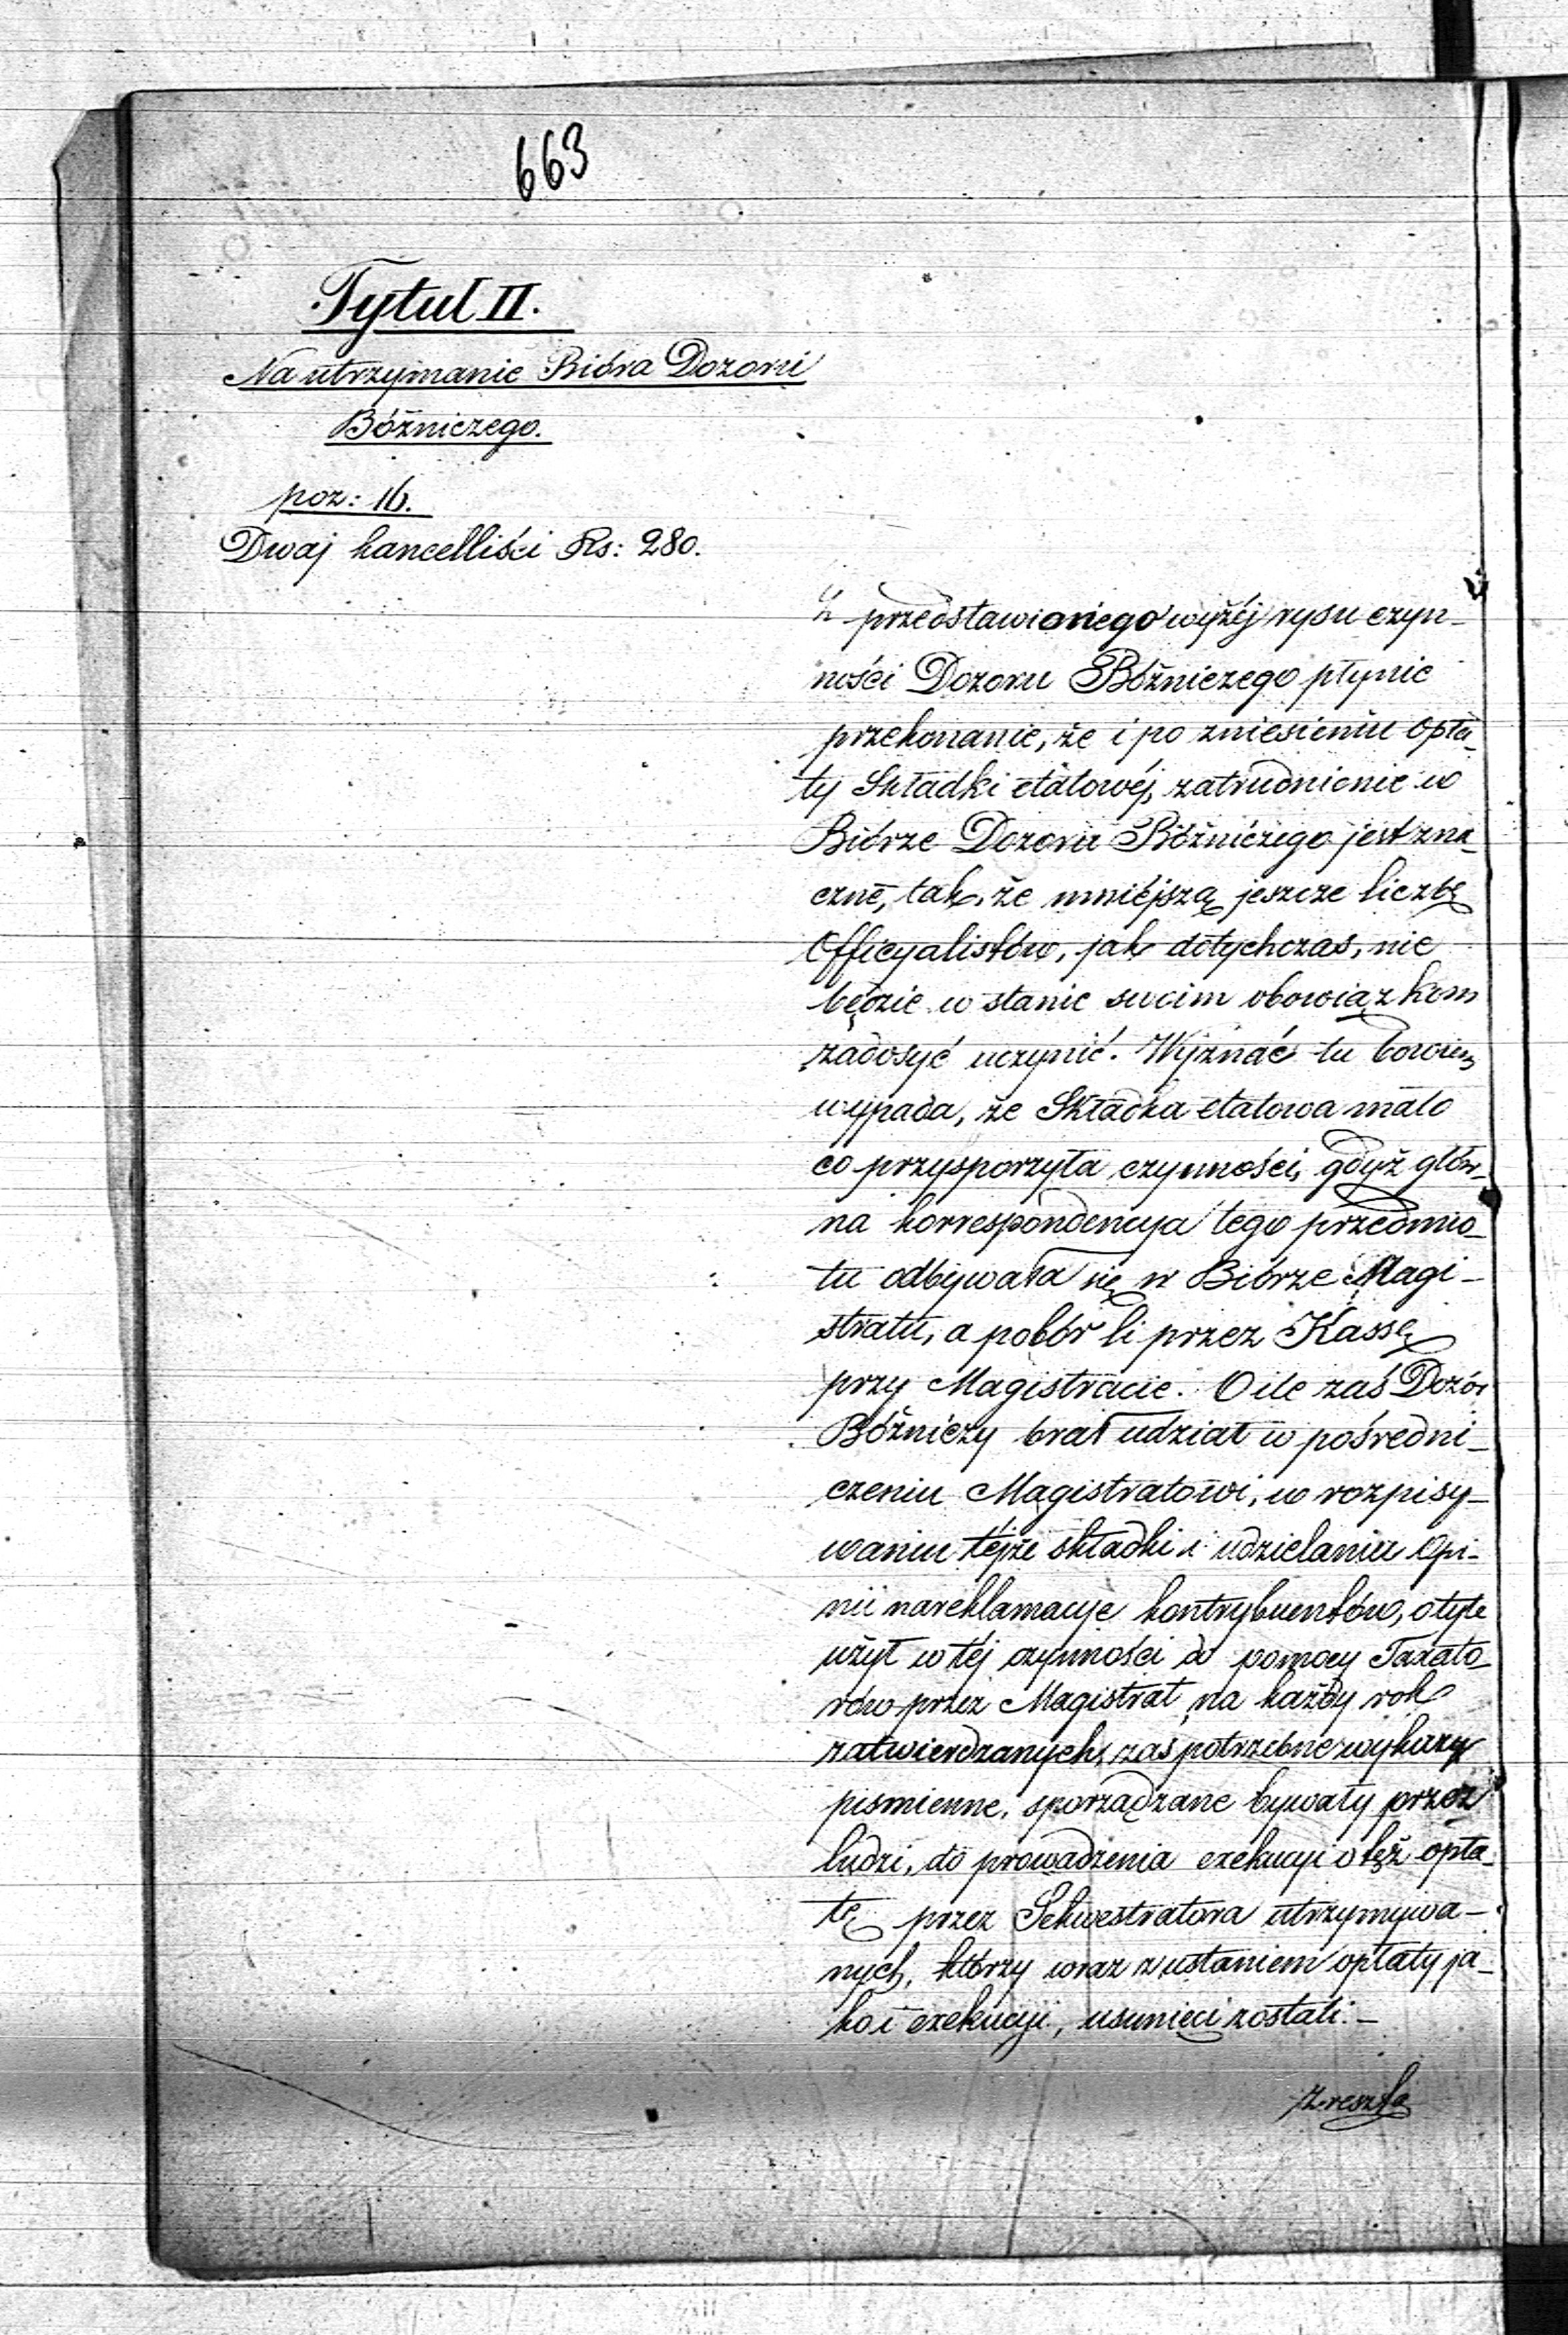 663
Tytuł II.
Na utrzymanie Bióra Dozoru
Bóżniczego.
poz: 16.
Dwaj kancelliści Rs: 280.
Z przedstawionego wyżéj rysu czyn-
ności Dozoru Bóżniczego płynie
przekonanie, że i po zniesieniu opła-
ty Składki etatowéj, zatrudnienie w
Biórze Dozoru Bóżniczego jest zna-
czne, tak, że mniéjszą jeszcze liczbę
Officyalistów, jak dotychczas, nie
będzie w stanie swoim obowiązkom
zadosyć uczynić. Wyznać tu bowiem
wypada, że Składka etatowa mało
co przysporzyła czynności, gdyż głów-
na korrespondencyja tego przedmio-
tu odbywała się w Biórze Magi-
stratu, a pobór li przez Kassę
przy Magistracie. O ile zaś Dozór
Bóżniczy brał udział w pośredni-
czeniu Magistratowi, w rozpisy-
waniu téjże składki i udzielaniu Opi-
nii na reklamacyje kontrybuentów, o tyle
użył w téj czynności do pomocy Taxato-
rów przez Magistrat na każdy rok
zatwierdzanych, zaś potrzebne wykazy
piśmienne, sporządzane bywały przez
ludzi, do prowadzenia exekucyi o tęż opła-
tę przez Sekwestratora utrzymywa-
nych, którzy wraz z ustaniem opłaty ja-
ko i exekucyi, usunięci zostali. -
Zresztą